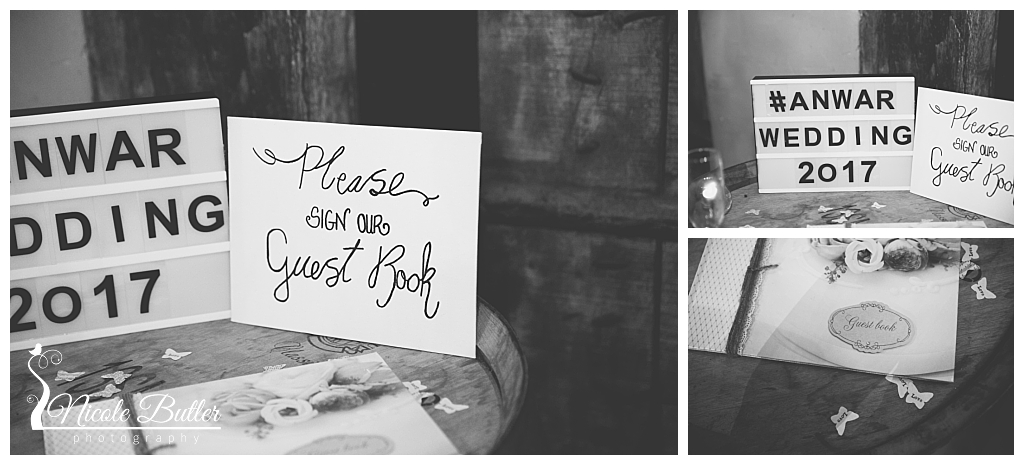 NWAR
DDING
2017
Please
SIGN OUR
Guest Book
Nicole Butler
photography
#ANWAR
WEDDING
2017
Please
SIGN OUR
Guest Boo
Guest book
Love
Love